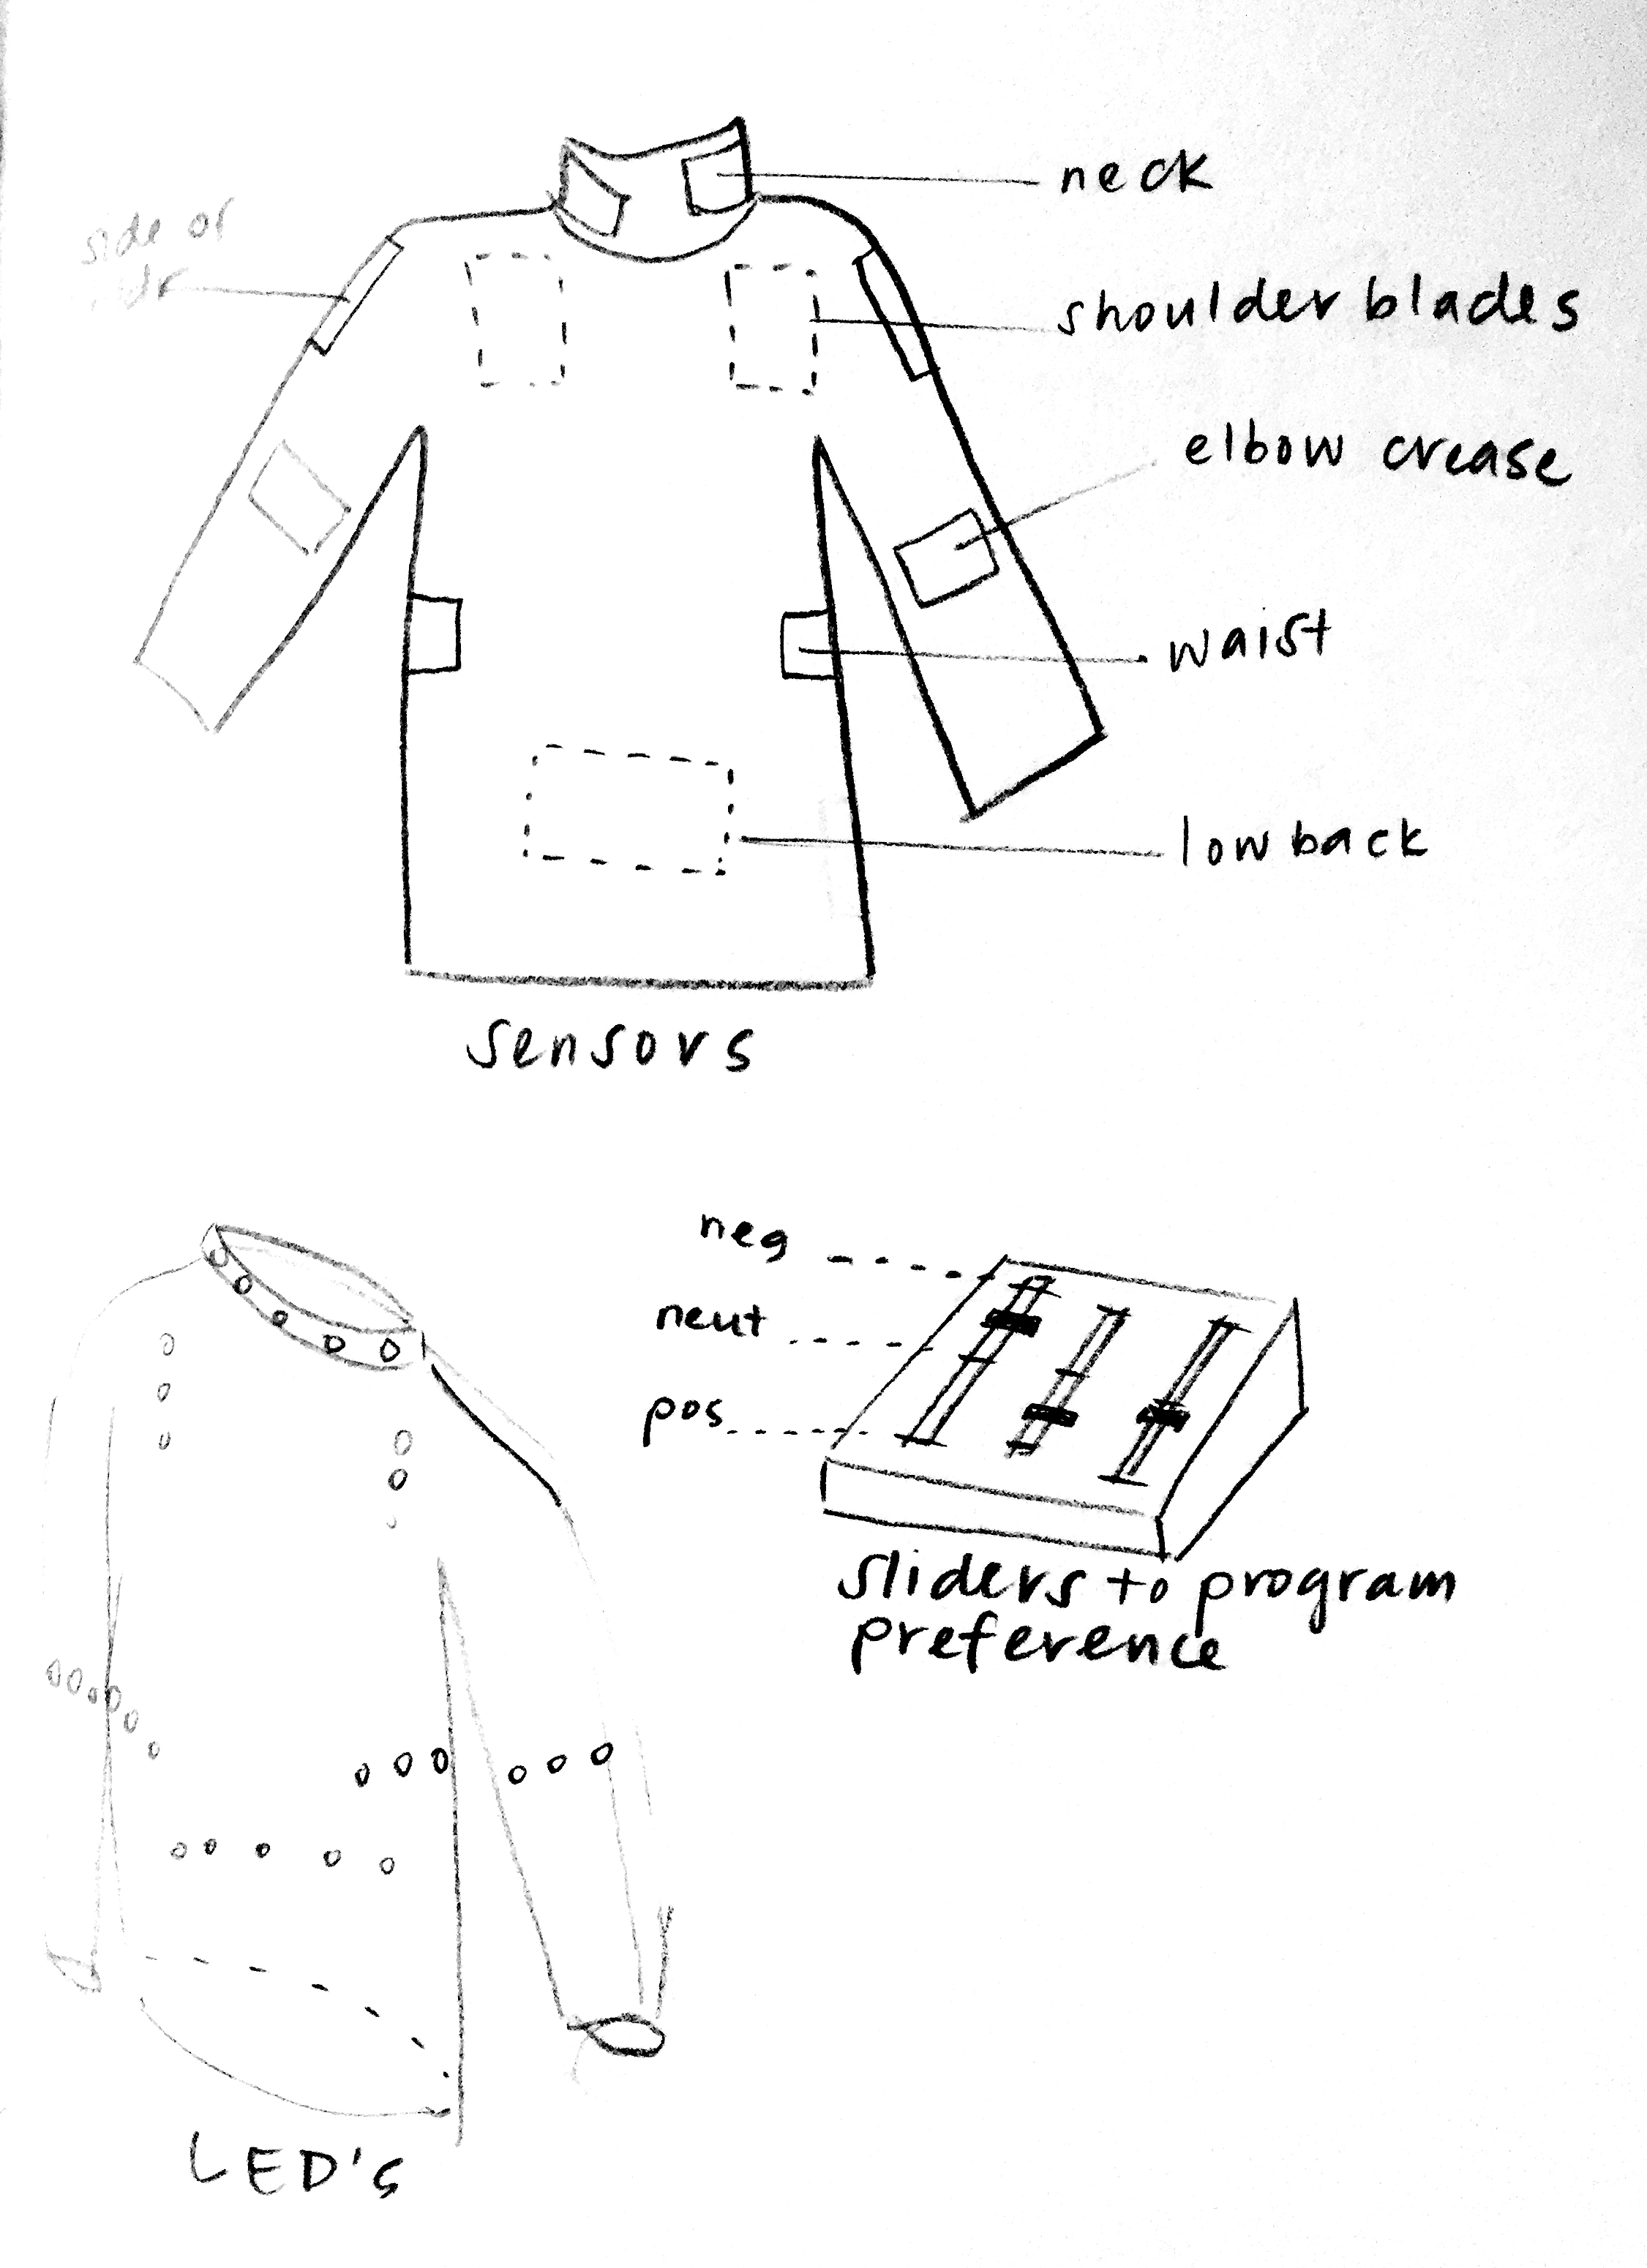 neck
side of
shoulder blades
elbow crease
waist
low back
sensors
neg
neut
pos
sliders to program
preference
LED's